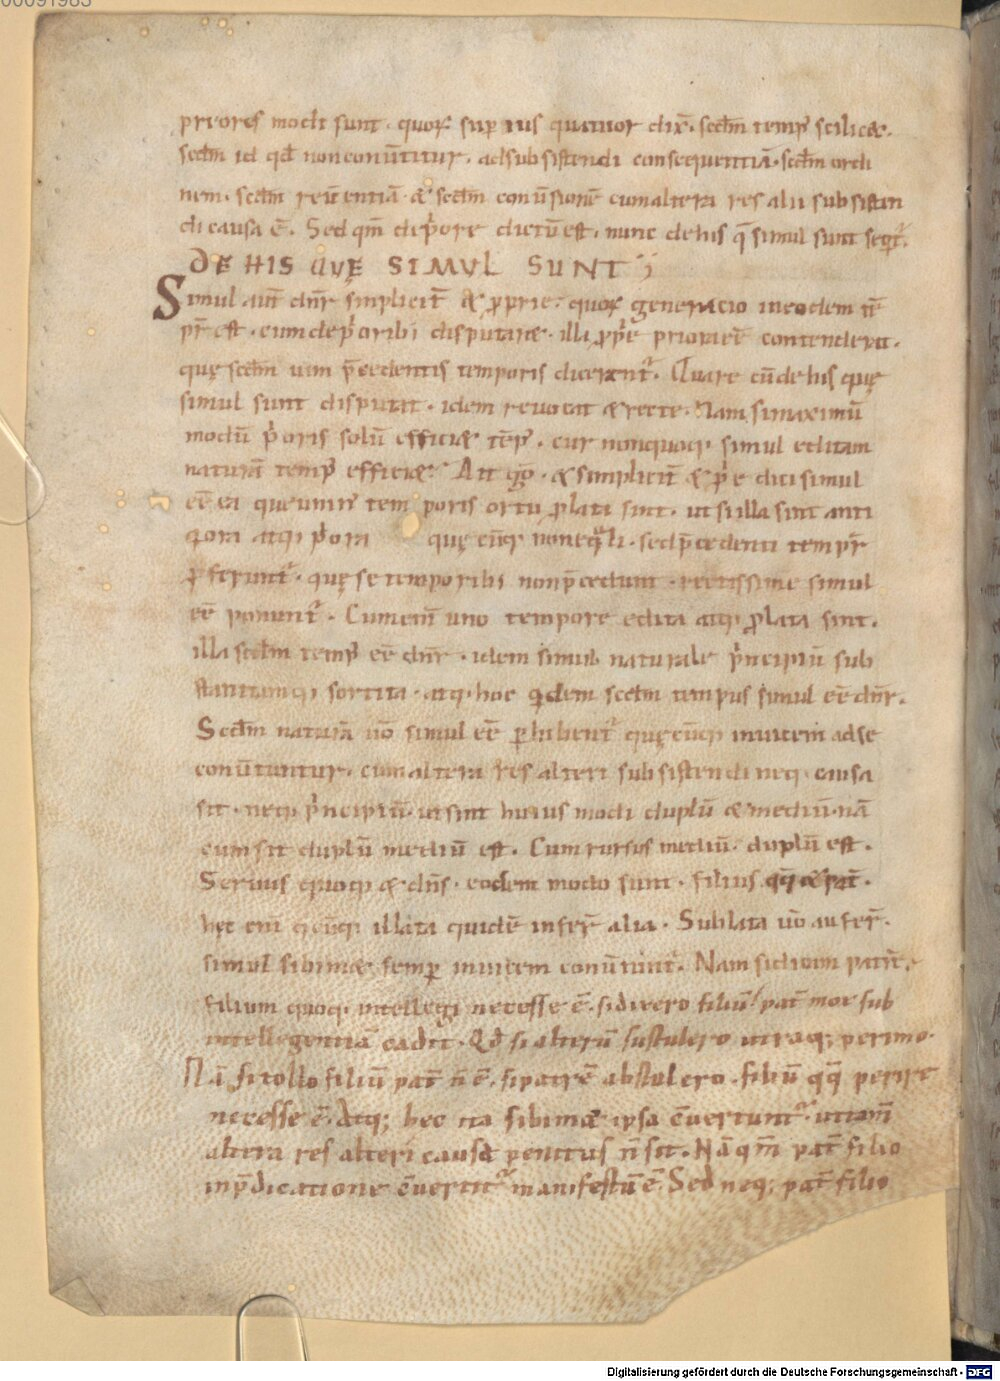 00091983
priores modi sunt. quoꝝ superius quatuor dix̄. scd̄m temp̄ scilicet.
scd̄m id qđ non conūtitur. ad subsistendi consequentiā. scd̄m ordi
nem. scd̄m reūentiā. & scd̄m conūsionē cum altera res alii subsisten
di causa ē. Sed qm̄ de p̍ore dictū est. nunc de his q̄ simul sunt seqr̄.
DE HIS QVĘ SIMVL SUNT
Simul aut̄ dn̄r simplicit̄ & ꝓprie. quoꝝ generatio in eodem tē
pr̄ est. cum de p̍oribꝰ disputaret. illa ꝓp̍e priora eē contenderit.
quę scd̄m uim p̄cedentis temporis dicerent᷑. Quare cū de his quę
simul sunt disputat. idem reuocat & recte. Nam si maximū
modū p̍oris solū efficit tēp̄. cur non quoq; simul editam
naturā temp̄ efficiet? Ait g̊. & simplicit̄ & ꝓp̍e dici simul
eē ea que unir̄ temporis ortu ꝓlata sint. ut si illa sint anti
qora atq; p̍ora quę cūq; non eq̍li. sed p̄cedenti tempr̄
ꝓferunt᷑. quę se temporibꝰ non p̄cedunt. rectissime simul
eē ponunt᷑. Cum eni᷑ uno tempore edita atq; ꝓlata sint.
illa scd̄m temp̄ eē dn̄r. idem simul naturale p̍ncipiū sub
stantiamq; sortita. atq; hoc q̍dem scd̄m tempus simul eē dn̄r.
Scd̄m naturā ūo simul eē ꝑhibent᷑ quęcūq; inuicem ad se
conūtuntur. cum altera res alteri subsistendi neq; causa
sit. neq; p̍ncipiū. ut sint huius modi duplū & mediū. nā
cum sit duplū mediū est. Cum rursus mediū. duplū est.
Seruus quoq; & dn̄s. eodem modo sunt. filius qq̄ & pat̄.
hęc eni᷑ q̄cūq; illata quidē infer̄ alia. Sublata ūo aufer̄.
simul sibimet semꝑ inuicem conūtunt᷑. Nam si dicam patrē.
filium quoq; intellegi necesse ē. si dixero filiū. pat̄ mox sub
intellegentiā cadit. Qđ si alterū sustulero utraq; perimo.
Nā si tollo filiū pat̄ n̄ ē. si patrē abstulero. filiū qq̄ perire
necesse ē. Atq; hec ita sibimet ipsa c̄uertunt᷑. ut tam̄
altera res alteri causa penitus n̄ sit. Nā qm̄ pat̄ filio
in p̄dicatione c̄uertit᷑ manifestū ē. Sed neq; pat̄ filio
Digitalisierung gefördert durch die Deutsche Forschungsgemeinschaft - DFG